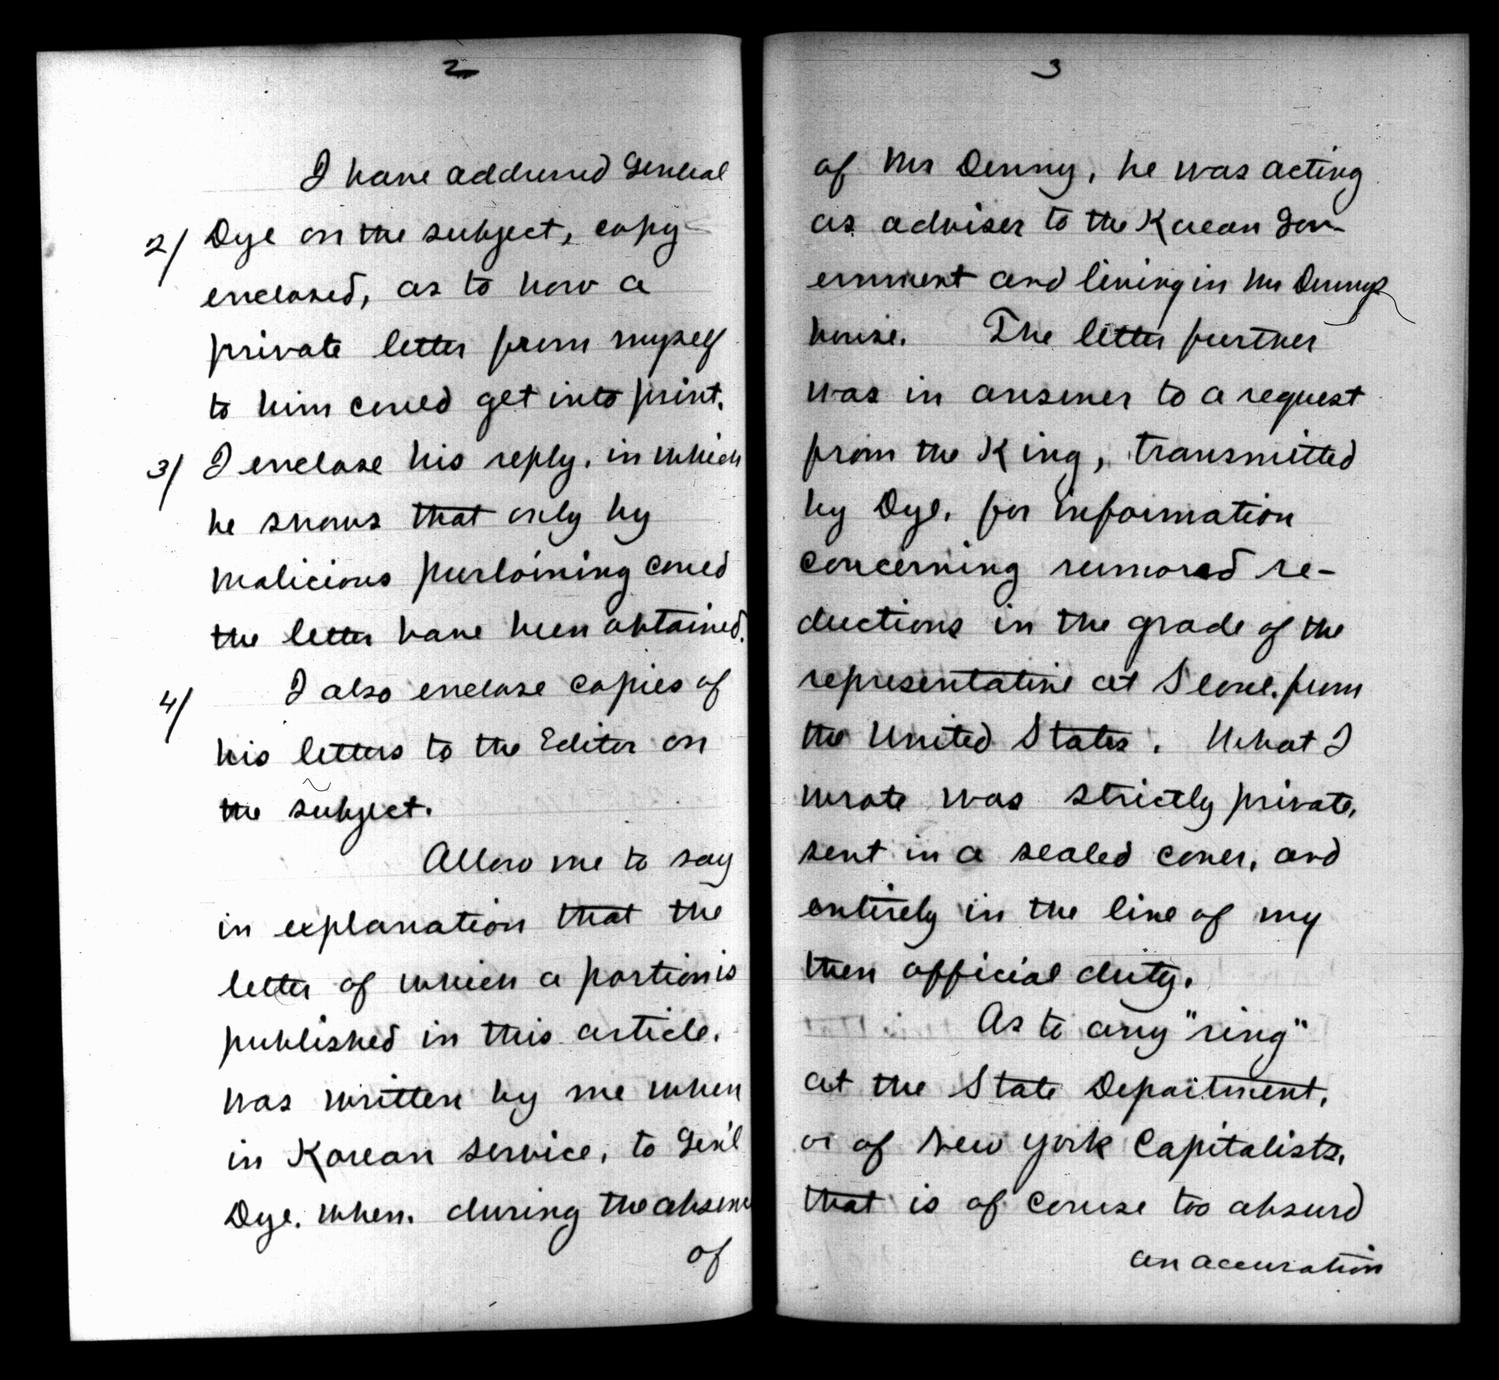 2
I have addressed General
2/ Dye on the subject, copy
enclosed, as to how a
private letter from myself
to him could get into print.
3/ I enclose his reply, in which
he shows that only by
malicious purloining could
the letter have been obtained.
4/ I also enclose copies of
his letters to the Editor on
the subject.
Allow me to say
in explanation that the
letter of which a portion is
published in this article,
was written by me when
in Korean service, to Gen'l
Dye, when, during the absence
of
3
of Mr Denny, he was acting
as adviser to the Korean Gov-
ernment and living in Mr Denny's
house. The letter further
was in answer to a request
from the King, transmitted
by Dye, for information
concerning rumored re-
ductions in the grade of the
representative at Seoul, from
the United States. What I
wrote was strictly private,
sent in a sealed cover, and
entirely in the line of my
then official duty.
As to any "ring"
at the State Department,
or of New York Capitalists,
that is of course too absurd
an accusation